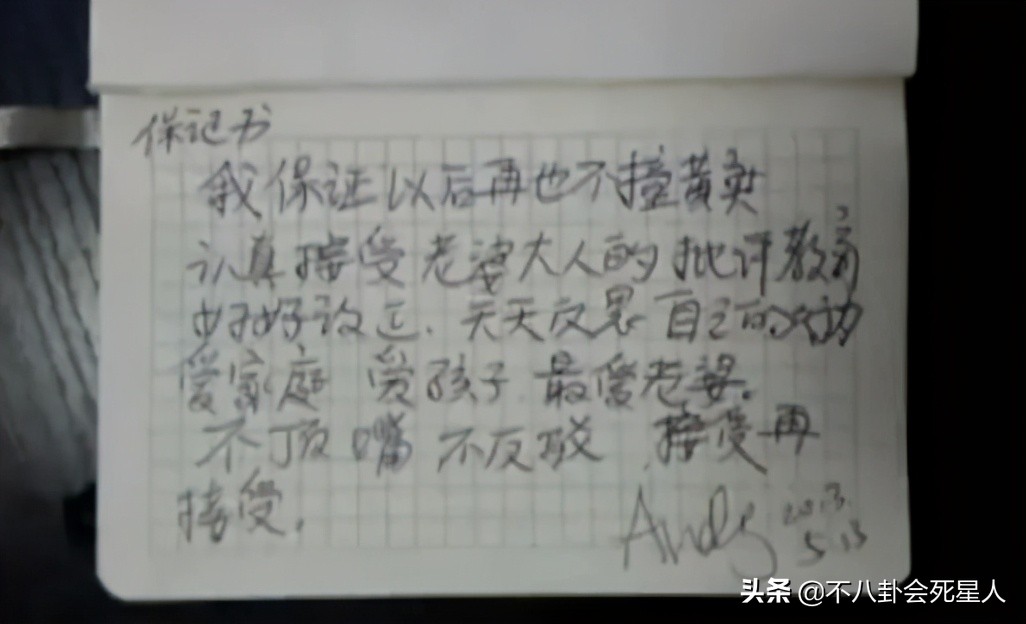 保证书
我保证以后再也不撞黄奕
认真接受老婆大人的批评教育
好好改正.天天反思自己的
爱家庭 爱孩子.最爱老婆.
不顶嘴 不反驳 接受再
接受.
Andy 2013.
5.13
头条 @不八卦会死星人